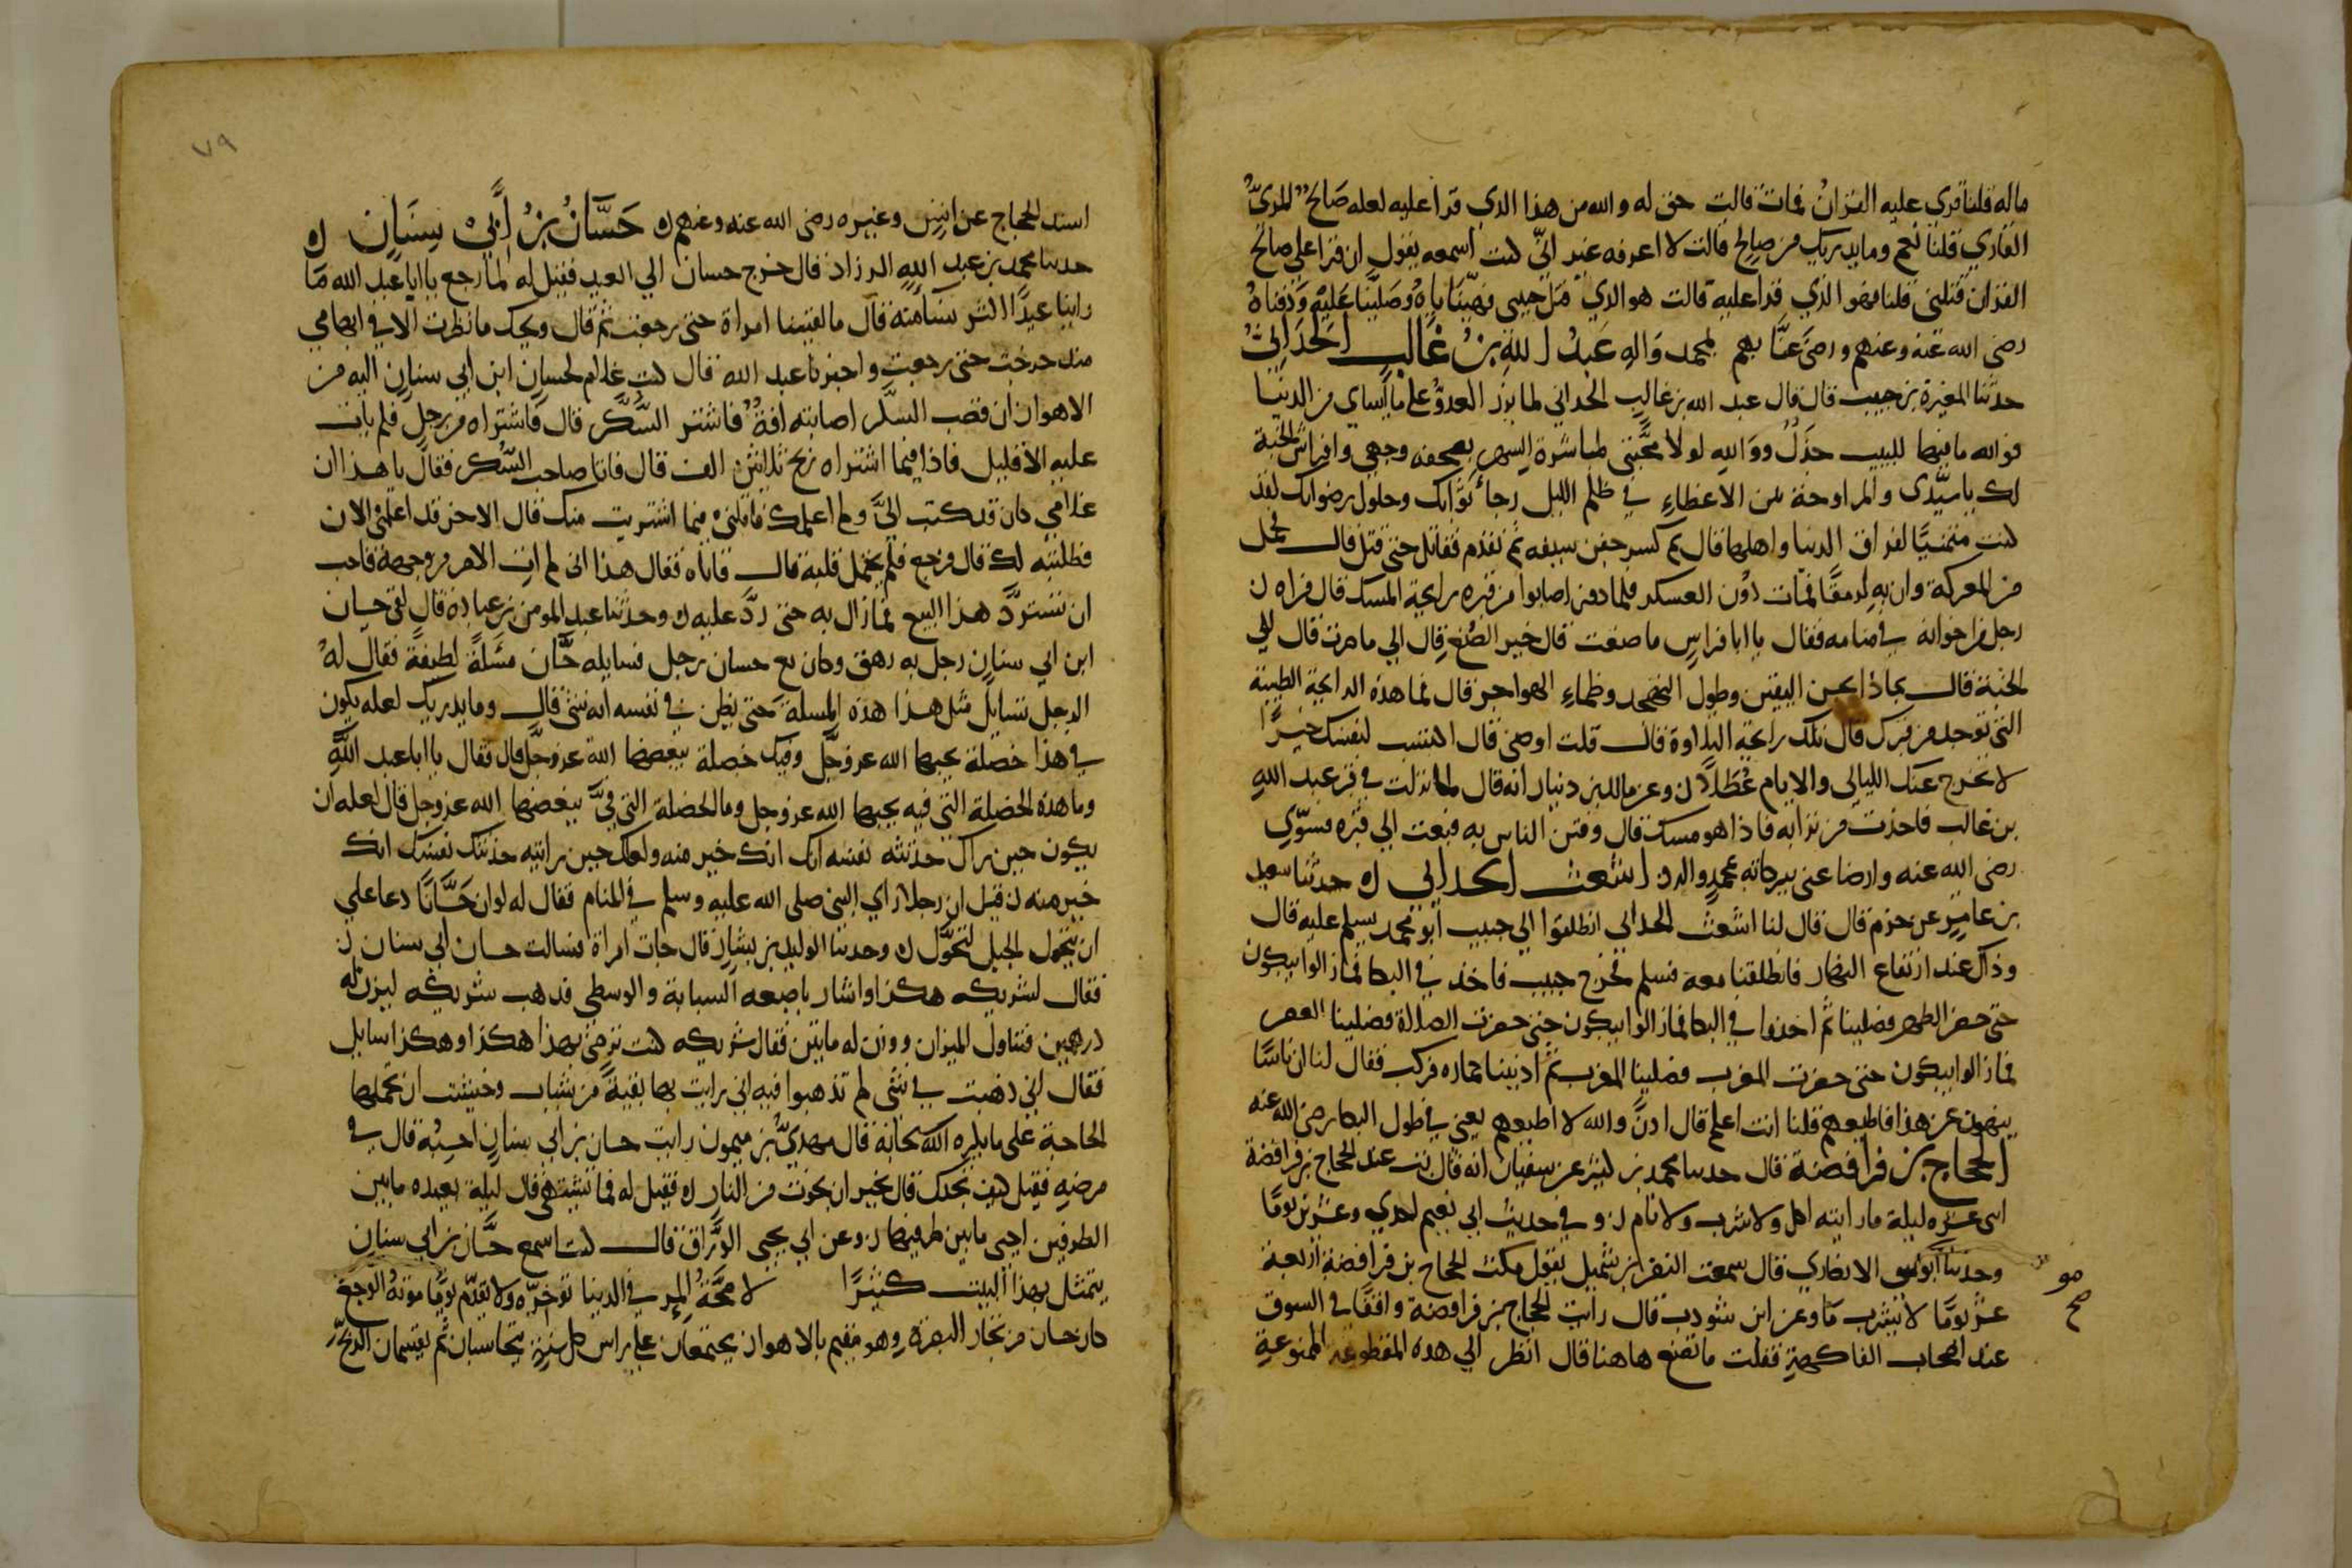 ماله قلنا قري عليه القران فمات قالت حق له والله من هذا الذي قرا عليه لعله صالح المري
القاري قلنا نعم وما يدريك من صالح قالت لا اعرفه غير اني كنت اسمعه يقول ان قرا علي صالح
القران قتلني قلنا فهو الذي قرا عليه قالت هو الذي قتل حبيبي فهيناه وصلينا عليه ودفناه
رضى الله عنه وعنهم ورضى عنا بهم بمحمد واله عبد الله بن غالب الحداني
حدثنا المغيرة بن حبيب قال قال عبد الله بن غالب الحداني لما برز العدو على ما اساي من الدنيا
فوالله ما فيها للبيب جذل ووالله لولا محبتي لمباشرة السهر بصفحه وجهي وافراش الجبهة
لك يا سيدي والمراوحة بين الاعضاء في ظلم الليل رجاء ثوابك وحلول رضوانك لقد
كنت متمنيا لفراق الدنيا واهلها قال ثم كسر جفن سيفه ثم تقدم فقاتل حتى قتل قال فحمل
من المعركة وان به لرمقا فمات دون العسكر فلما دفن اصابوا من قبره رايحة المسك قال فراه
رجل من اخوانه في منامه فقال يا ابا فراس ما صنعت قال خير الصنع قال الي ما صرت قال الي
الجنة قال بماذا بحسن اليقين وطول التهجد وظماء الهواجر قال فما هذه الرايحة الطيبة
التي توجد من قبرك قال تلك رايحة التلاوة قال قلت اوصني قال اكتسب لنفسك خيرا
لا تخرج عنك الليالي والايام عطلا وعن مالك بن دينار انه قال لما نزلت في قبر عبد الله
بن غالب فاخذت من ترابه فاذا هو مسك قال وفتن الناس به فبعث الي قبره فسوي
رضى الله عنه وارضا عنى ببركاته بمحمد واله اشعث الحداني حدثنا سعيد
بن عامر عن حزم قال قال لنا اشعث الحداني انطلقوا الي حبيب ابو محمد نسلم عليه قال
وذاك عند ارتفاع النهار فانطلقنا معه فسلم فخرج حبيب فاخذ في البكا فما زالوا يبكون
حتى حضر الظهر فصلينا ثم اخذوا في البكا فما زالوا يبكون حتى حضرت الصلاة فصلينا العصر
فما زالوا يبكون حتى حضرت المغرب فصلينا المغرب ثم ادنينا حماره فركب فقال لنا ان ناسا
ينهون عن هذا فاطيعهم قلنا انت اعلم قال اذن والله لا اطيعهم يعني في طول البكا رضى الله عنه
الحجاج بن فرافصة قال حدثنا محمد بن كثير عن سفيان انه قال بت عند الحجاج بن فرافصة
اثني عشره ليلة ما رايته اكل ولا شرب ولا نام و في حديث ابي نعيم احدي وعشرين يوما
وحدثنا ابو موسى الانصاري قال سمعت النضر بن شميل يقول مكث الحجاج بن فرافصة اربعة
مو
صح
عشر يوما لا يشرب ما وعن ابن شوذب قال رايت الحجاج بن فرافصة واقفا في السوق
عند اصحاب الفاكهة فقلت ما تصنع هاهنا قال انظر الي هذه المقطوعة الممنوعة
٧٩
اسند الحجاج عن انس وغيره رضى الله عنه وعنهم حسان بن أبي سنان
حدثنا محمد بن عبد الله الرزاد قال خرج حسان الي العيد فقيل له لما رجع يا ابا عبد الله ما
راينا عيدا اكثر نسا منه قال ما لقيتنا امراة حتى رجعت ثم قال ويحك ما نظرت الا في ابهامي
منذ خرجت حتى رجعت واخبرنا عبد الله قال كتب غلام لحسان ابن ابي سنان اليه من
الاهواز ان قصب السكر اصابته افة فاشتر السكر قال فاشتراه من رجل فلم يات
عليه الا قليل فاذا فيما اشتراه ربح ثلاثين الف قال فاتا صاحب السكر فقال يا هذا ان
غلامي كان قد كتب الي ولم اعلمك فاقلني فيما اشتريت منك قال الاخر قد اعلمتني الان
فطيبته لك قال فرجع فلم يحتمل قلبه قال فاتاه فقال هذا انى لم ات الامر من وجهه فاحب
ان تسترد هذا البيع فما زال به حتى رد عليه وحدثنا عبد المومن بن عباده قال لقي حسان
ابن ابي سنان رجل به رهق وكان مع حسان رجل فسايله حسان مسلة لطيفة فقال له
الرجل تسايل مثل هذا هذه المسلة حتى يظن في نفسه انه شى قال وما يدريك لعله يكون
في هذا خصلة يحبها الله عز وجل وفيك خصلة يبغضها الله عز وجل قال فقال يا ابا عبد الله
وما هذه الخصلة التي فيه يحبها الله عز وجل وما الخصلة التي في يبغضها الله عز وجل قال لعله ان
يكون حين راك حدثته نفسه انك خير منه ولعلك حين رايته حدثتك نفسك انك
خير منه قيل ان رجلا راي النبى صلى الله عليه وسلم في المنام فقال له لو ان حسانا دعا علي
ان يتحول الجبل لتحول وحدثنا الوليد بن بشار قال جات امراة فسالت حسان ابي سنان
فقال لشريكه هكذا واشار باصبعه السبابة والوسطى فذهب شريكه ليزن له
درهمين فتناول الميزان ووزن له مايتين فقال شريكه كنت ترضى بهذا هكذا وهكذا سايل
فقال اني ذهبت في شى لم تذهبوا فيه اني رايت بها بقية من شباب وخشيت ان تحملها
الحاجة على ما يكره الله سبحانه قال مهدي بن ميمون رايت حسان بن ابي سنان احسبه قال في
مرضه فقيل كيف تجدك قال بخير ان نجوت من النار فقيل له فما تشتهى قال ليلة بعيده ما بين
الطرفين احيى ما بين طرفيها وعن ابي يحيى الوراق قال كنت اسمع حسان بن ابي سنان
يتمثل بهذا البيت كثيرا لا صحة المرء في الدنيا توخره ولا يقدم يوما موته الوجع
كان حسان من تجار البصرة وهو مقيم بالاهواز يجتمعان على راس كل سنة يتحاسبان ثم يقتسمان الربح